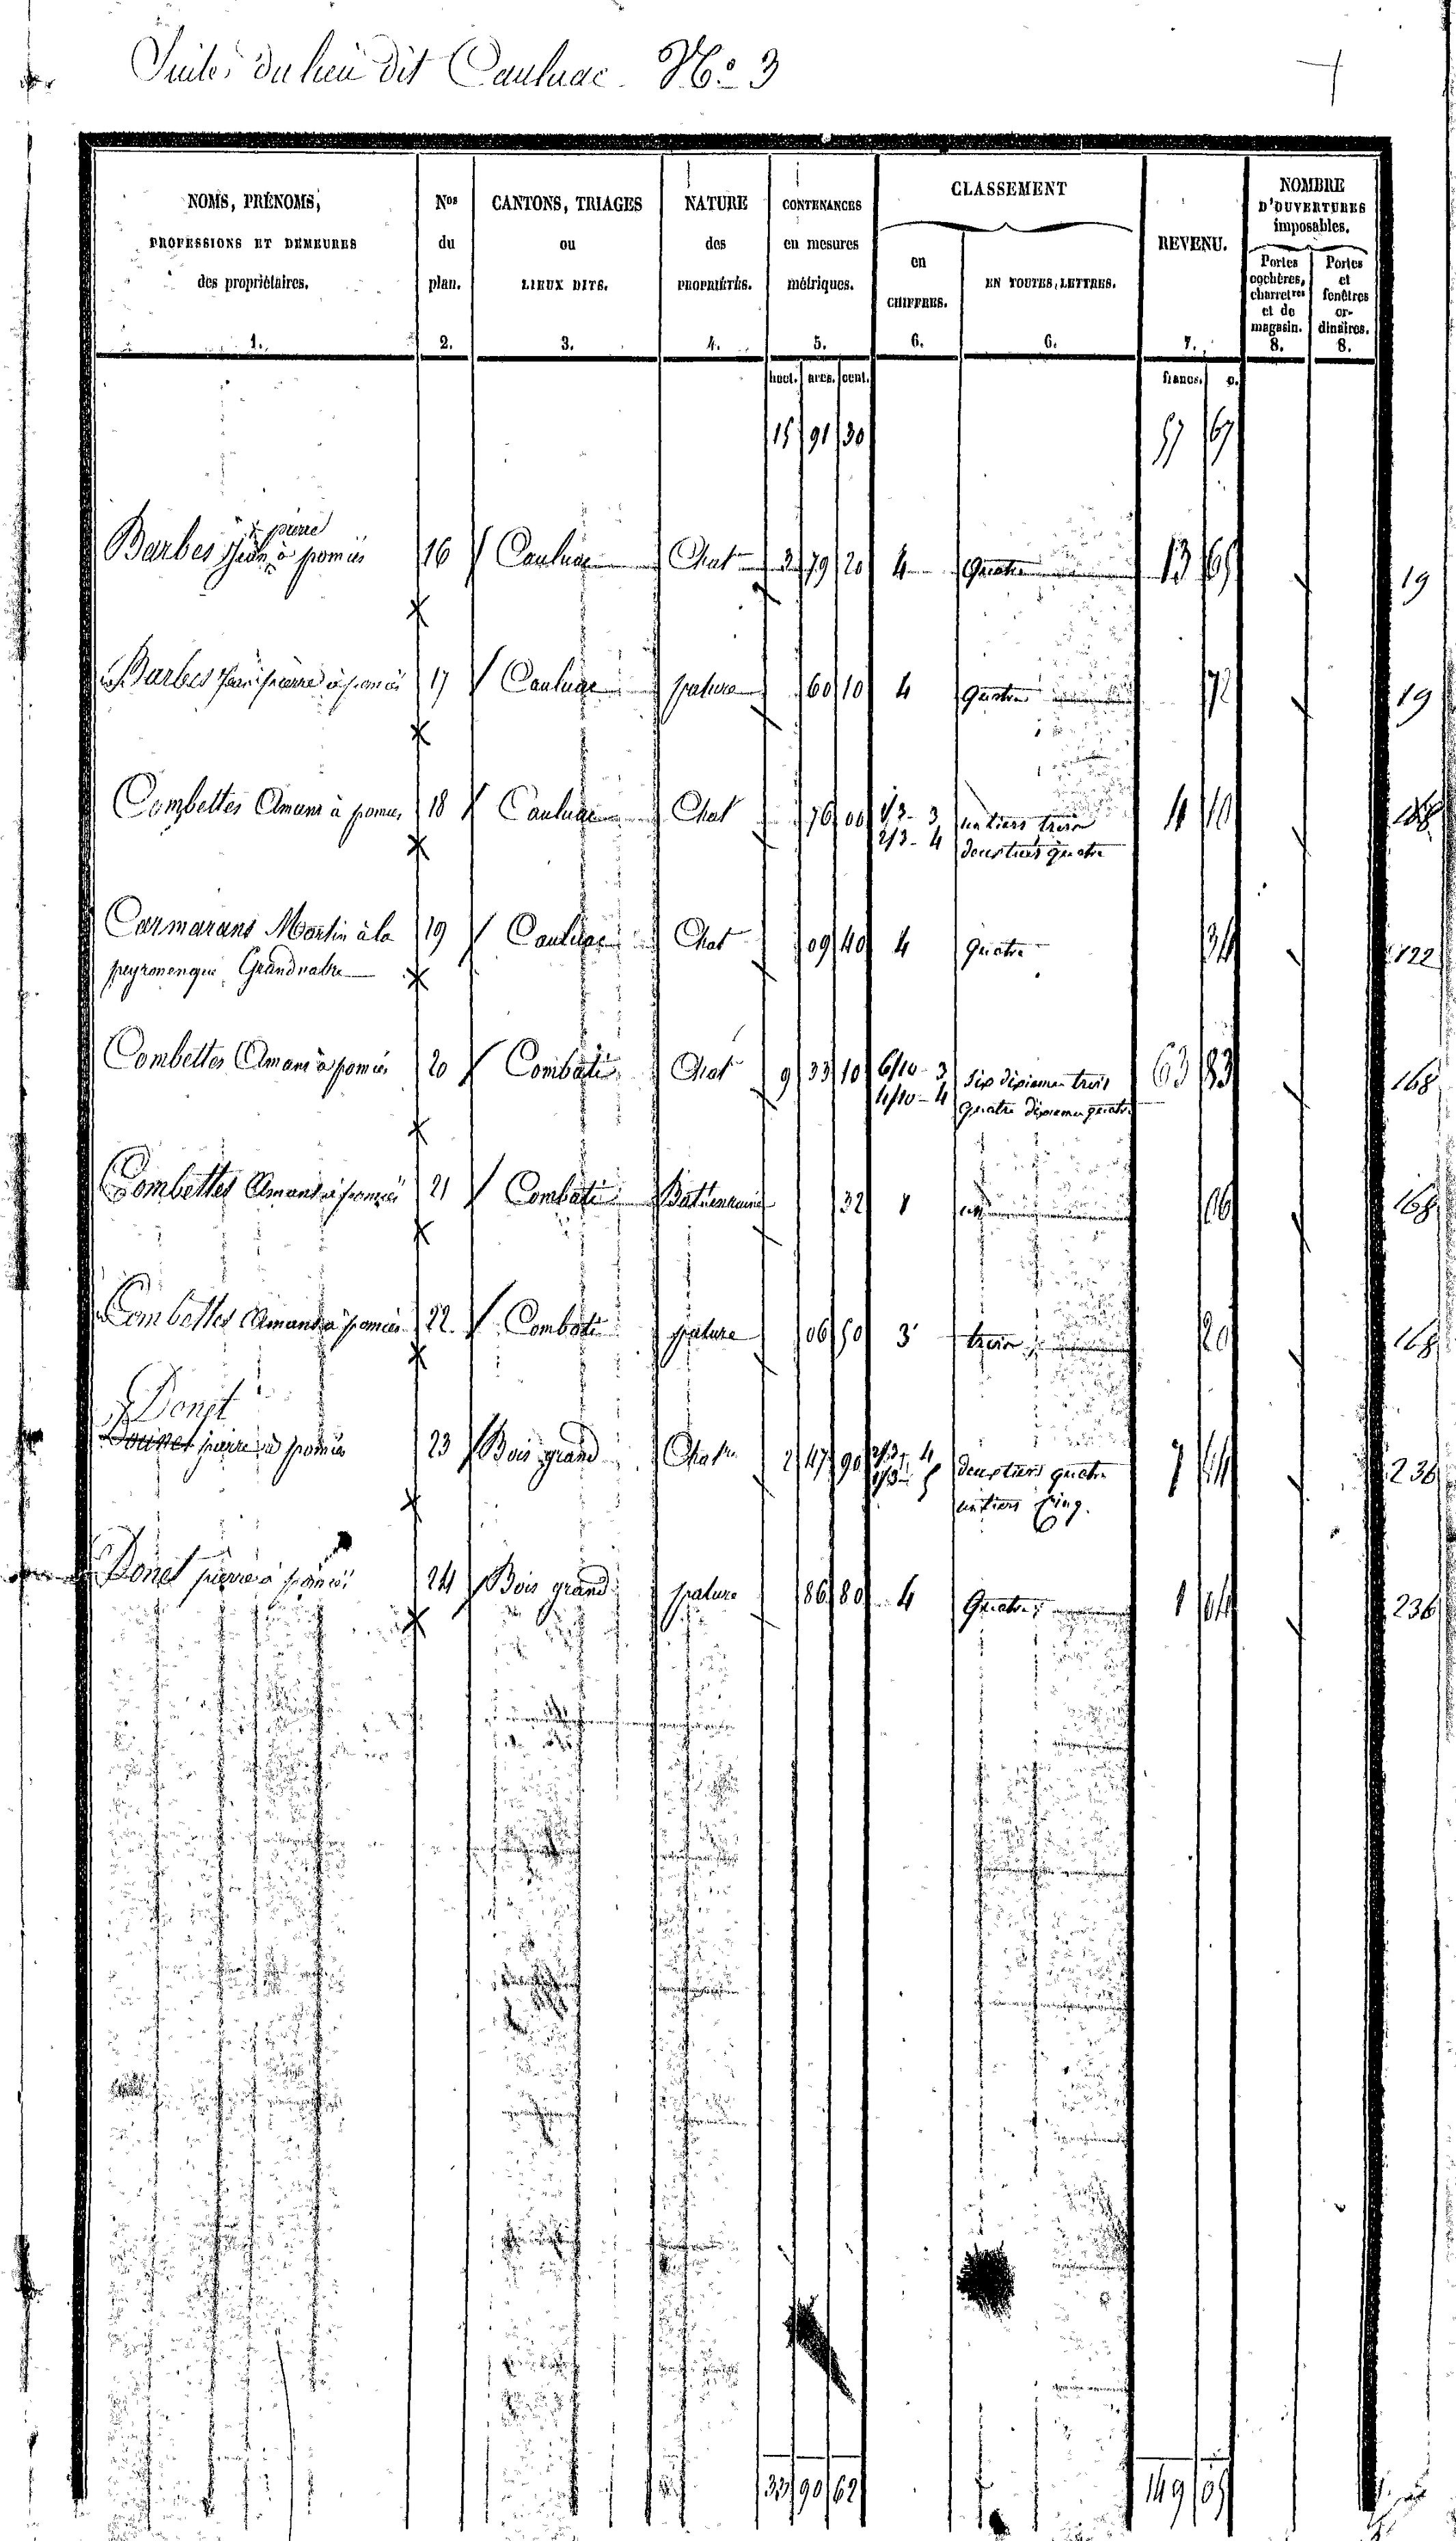 Suite du lieu dit Cauluac. No 3
NOMS, PRÉNOMS, PROFESSIONS ET DEMEURES des propriétaires. 1.
Nos du plan. 2.
CANTONS, TRIAGES ou LIEUX DITS. 3.
NATURE des PROPRIÉTÉS. 4.
CONTENANCES en mesures métriques. 5.
CLASSEMENT
en CHIFFRES. 6.
EN TOUTES LETTRES. 6.
REVENU. 7.
NOMBRE D'OUVERTURES imposables.
Portes cochères, charretres et de magasin. 8.
Portes et fenêtres ordinaires. 8.
hect. ares. cent. francs. c.
15 91 30 57 67
pierre
Barbes Jean à pomiés 16 Cauluac Chat 3 79 20 4 Quatre 13 65 19
Barbes Jean pierre à pomiés 17 Cauluac pature 60 10 4 Quatre 72 19
Combettes Amans à pomies 18 Cauluac Chat 76 00 1/3 - 3 un tiers trois 4 10 168
2/3 - 4 deux tiers quatre
Carmarans Martin à la 19 Cauluac Chat 09 40 4 Quatre 34 122
peyronenque Grandvabre
Combettes Amans à pomiés 20 Combati Chat 9 33 10 6/10 - 3 Six dixiemes trois 63 83 168
4/10 - 4 Quatre dixiemes quatre
Combettes Amans à pomiés 21 Combati 32 1 un 06 168
Combettes Amans à pomiés 22 Combati pature 06 50 3 trois 20 168
Donet
pierre à pomiés 23 Bois grand Chat 2 47 90 2/3 - 4 deux tiers quatre 7 44 236
1/3 - 5 un tiers cinq.
Donet pierre à pomiés 24 Bois grand pature 86 80 4 Quatre 1 04 236
33 90 62 149 05